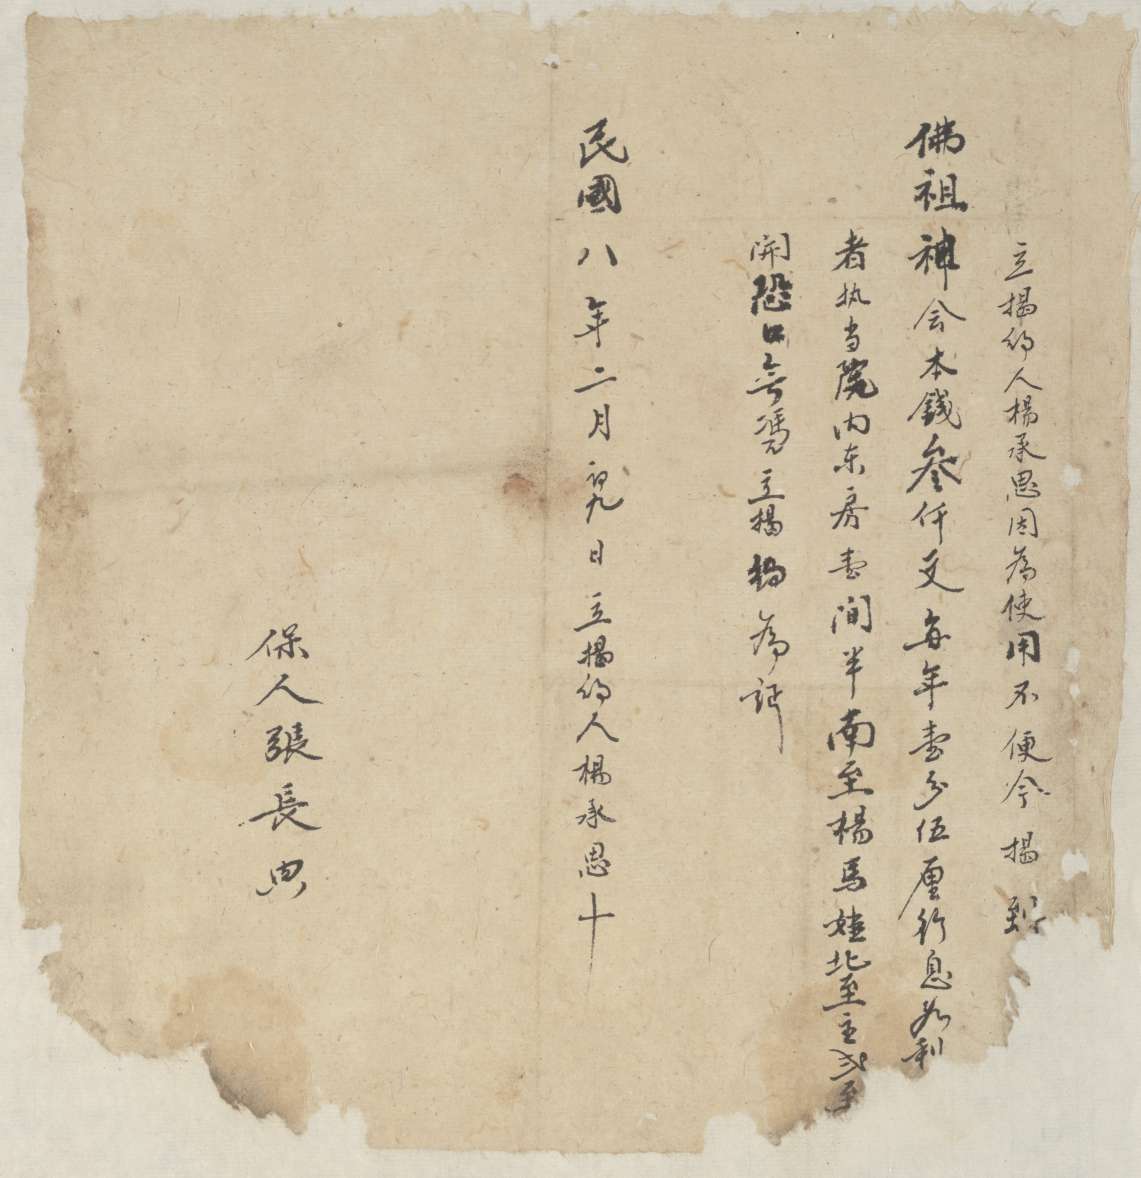 立揭约人楊承思因為使用不便今揭到
佛祖神会本錢叁仟文每年壹分伍厘行息如利
者执当院内东房壹间半南至楊馬娃北至主弍至
開恐口無憑立揭約為証
民國八年二月初九日立揭约人楊承思十
保人張長典